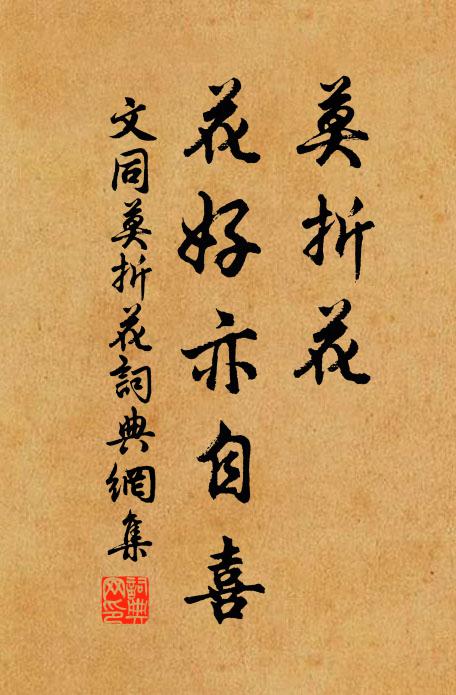 莫折花
花好亦自喜
文同莫折花詞典網集
詞典網印